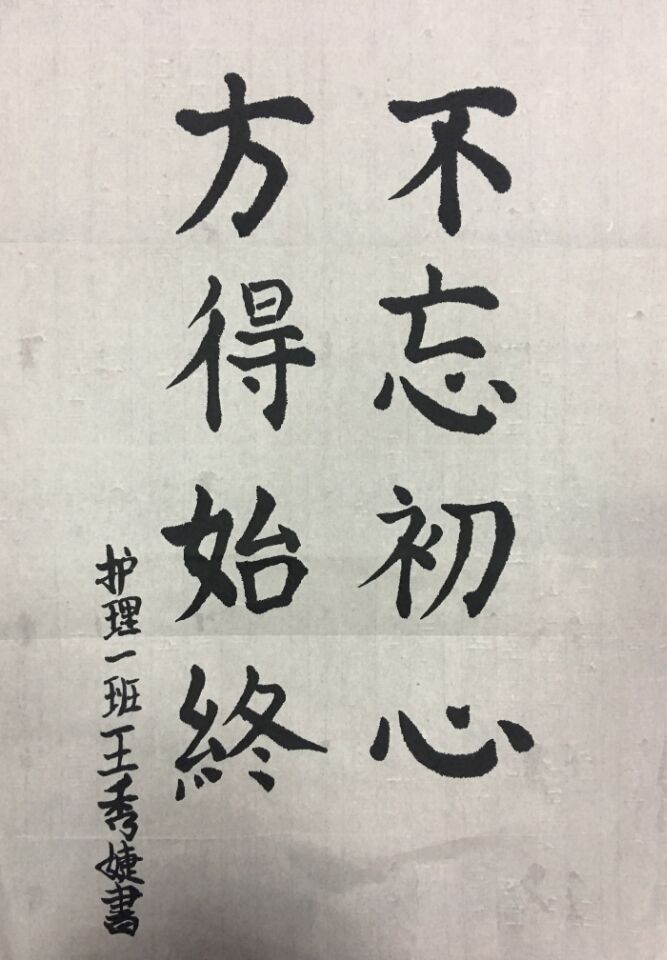 不忘初心
方得始終
护理一班王秀婕書